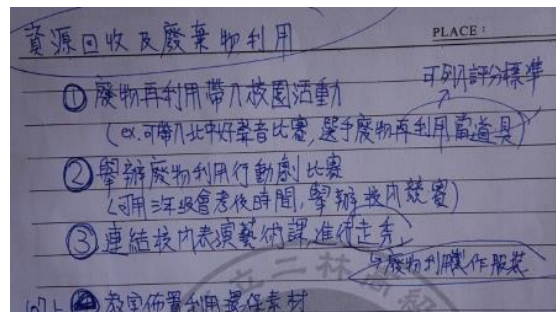 資源回收及廢棄物利用
PLACE：
① 廢物再利用帶入校園活動
可列入評分標準
(ex.可帶入北中好聲音比賽,選手廢物再利用當道具)
② 舉辦廢物利用行動劇比賽
(可用三年級會考後時間,舉辦校內競賽)
③ 連結校內表演藝術課,進行走秀
↳廢物利用製作服裝
立二林高級
④ 教室佈置利用環保素材